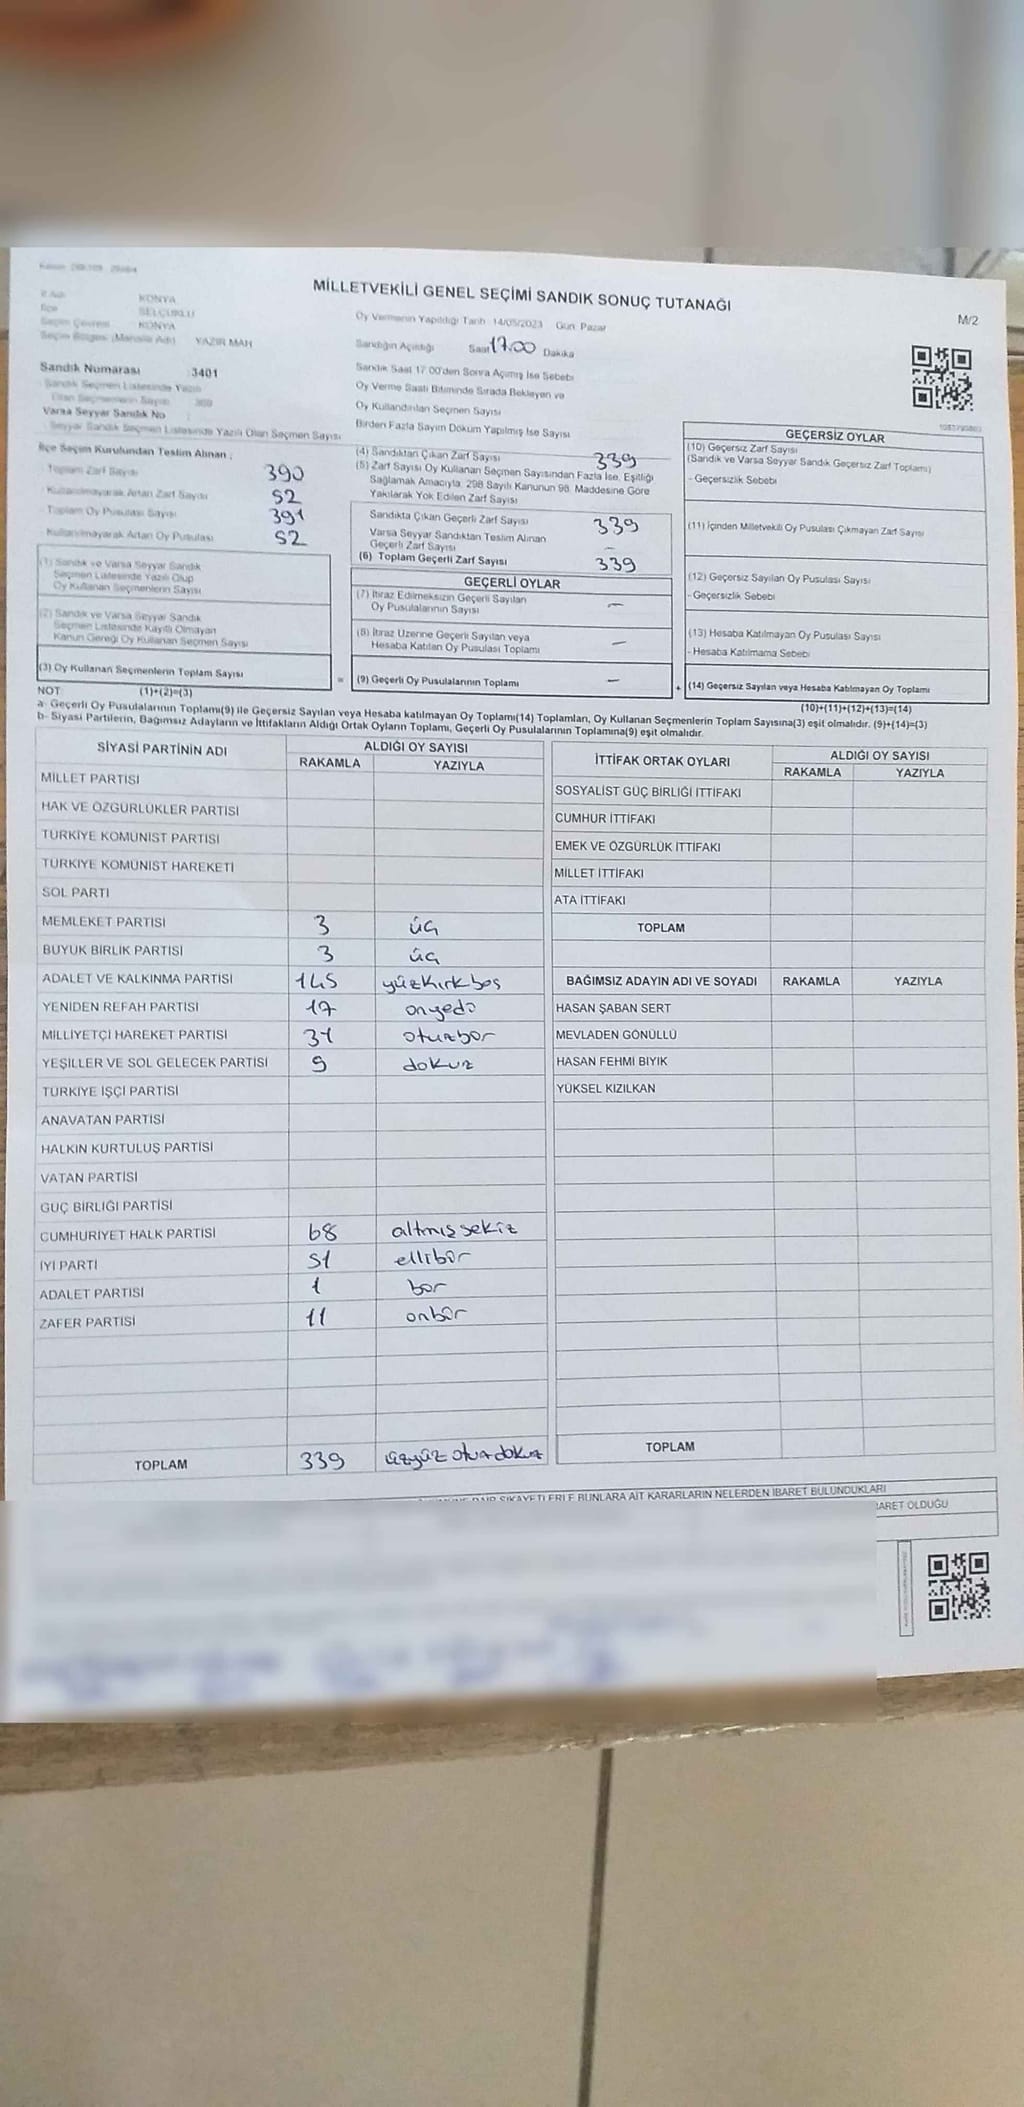 MİLLETVEKİLİ GENEL SEÇİMİ SANDIK SONUÇ TUTANAĞI
M/2
İl Adı KONYA
İlçe SELÇUKLU
Seçim Çevresi KONYA
Seçim Bölgesi (Mahalle Adı) YAZIR MAH
Oy Vermenin Yapıldığı Tarih 14/05/2023 Gün: Pazar
Sandığın Açıldığı Saat 17.00 Dakika
Sandık Saat 17:00'den Sonra Açılmış İse Sebebi
Oy Verme Saati Bitiminde Sırada Bekleyen ve
Oy Kullandırılan Seçmen Sayısı
Birden Fazla Sayım Döküm Yapılmış İse Sayısı
Sandık Numarası : 3401
Sandık Seçmen Listesinde Yazılı
Olan Seçmenlerin Sayısı
Varsa Seyyar Sandık No :
Seyyar Sandık Seçmen Listesinde Yazılı Olan Seçmen Sayısı
İlçe Seçim Kurulundan Teslim Alınan ;
- Toplam Zarf Sayısı 390
- Kullanılmayarak Artan Zarf Sayısı 52
- Toplam Oy Pusulası Sayısı 391
- Kullanılmayarak Artan Oy Pusulası 52
(1) Sandık ve Varsa Seyyar Sandık
Seçmen Listesinde Yazılı Olup
Oy Kullanan Seçmenlerin Sayısı
(2) Sandık ve Varsa Seyyar Sandık
Seçmen Listesinde Kayıtlı Olmayan
Kanun Gereği Oy Kullanan Seçmen Sayısı
(3) Oy Kullanan Seçmenlerin Toplam Sayısı
(4) Sandıktan Çıkan Zarf Sayısı 339
(5) Zarf Sayısı Oy Kullanan Seçmen Sayısından Fazla İse, Eşitliği
Sağlamak Amacıyla, 298 Sayılı Kanunun 98. Maddesine Göre
Yakılarak Yok Edilen Zarf Sayısı
Sandıkta Çıkan Geçerli Zarf Sayısı 339
Varsa Seyyar Sandıktan Teslim Alınan
Geçerli Zarf Sayısı –
(6) Toplam Geçerli Zarf Sayısı 339
GEÇERLİ OYLAR
(7) İtiraz Edilmeksizin Geçerli Sayılan
Oy Pusulalarının Sayısı –
(8) İtiraz Üzerine Geçerli Sayılan veya
Hesaba Katılan Oy Pusulası Toplamı –
= (9) Geçerli Oy Pusulalarının Toplamı –
GEÇERSİZ OYLAR
(10) Geçersiz Zarf Sayısı
(Sandık ve Varsa Seyyar Sandık Geçersiz Zarf Toplamı)
- Geçersizlik Sebebi
(11) İçinden Milletvekili Oy Pusulası Çıkmayan Zarf Sayısı
(12) Geçersiz Sayılan Oy Pusulası Sayısı
- Geçersizlik Sebebi
(13) Hesaba Katılmayan Oy Pusulası Sayısı
- Hesaba Katılmama Sebebi
+ (14) Geçersiz Sayılan veya Hesaba Katılmayan Oy Toplamı
NOT: (1)+(2)=(3)
(10)+(11)+(12)+(13)=(14)
a- Geçerli Oy Pusulalarının Toplamı(9) ile Geçersiz Sayılan veya Hesaba katılmayan Oy Toplamı(14) Toplamları, Oy Kullanan Seçmenlerin Toplam Sayısına(3) eşit olmalıdır. (9)+(14)=(3)
b- Siyasi Partilerin, Bağımsız Adayların ve İttifakların Aldığı Ortak Oyların Toplamı, Geçerli Oy Pusulalarının Toplamına(9) eşit olmalıdır.
SİYASİ PARTİNİN ADI ALDIĞI OY SAYISI
RAKAMLA YAZIYLA
MİLLET PARTİSİ
HAK VE ÖZGÜRLÜKLER PARTİSİ
TÜRKİYE KOMÜNİST PARTİSİ
TÜRKİYE KOMÜNİST HAREKETİ
SOL PARTİ
MEMLEKET PARTİSİ 3 üç
BÜYÜK BİRLİK PARTİSİ 3 üç
ADALET VE KALKINMA PARTİSİ 145 yüzkırkbeş
YENİDEN REFAH PARTİSİ 17 onyedi
MİLLİYETÇİ HAREKET PARTİSİ 31 otuzbir
YEŞİLLER VE SOL GELECEK PARTİSİ 9 dokuz
TÜRKİYE İŞÇİ PARTİSİ
ANAVATAN PARTİSİ
HALKIN KURTULUŞ PARTİSİ
VATAN PARTİSİ
GÜÇ BİRLİĞİ PARTİSİ
CUMHURİYET HALK PARTİSİ 68 altmışsekiz
İYİ PARTİ 51 ellibir
ADALET PARTİSİ 1 bir
ZAFER PARTİSİ 11 onbir
TOPLAM 339 üçyüz otuzdokuz
İTTİFAK ORTAK OYLARI ALDIĞI OY SAYISI
RAKAMLA YAZIYLA
SOSYALİST GÜÇ BİRLİĞİ İTTİFAKI
CUMHUR İTTİFAKI
EMEK VE ÖZGÜRLÜK İTTİFAKI
MİLLET İTTİFAKI
ATA İTTİFAKI
TOPLAM
BAĞIMSIZ ADAYIN ADI VE SOYADI RAKAMLA YAZIYLA
HASAN ŞABAN SERT
MEVLADEN GÖNÜLLÜ
HASAN FEHMİ BIYIK
YÜKSEL KIZILKAN
TOPLAM
ŞİKAYETLERLE BUNLARA AİT KARARLARIN NELERDEN İBARET BULUNDUKLARI
OLDUĞU